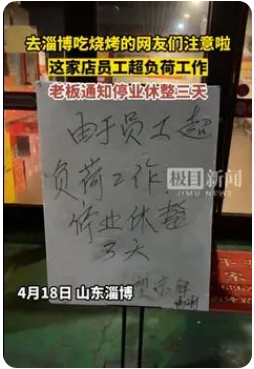 去淄博吃烧烤的网友们注意啦
这家店员工超负荷工作
老板通知停业休整三天
由于员工超
负荷工作
停业休整
3天
极目新闻
JIMU NEWS
4月18日 山东淄博